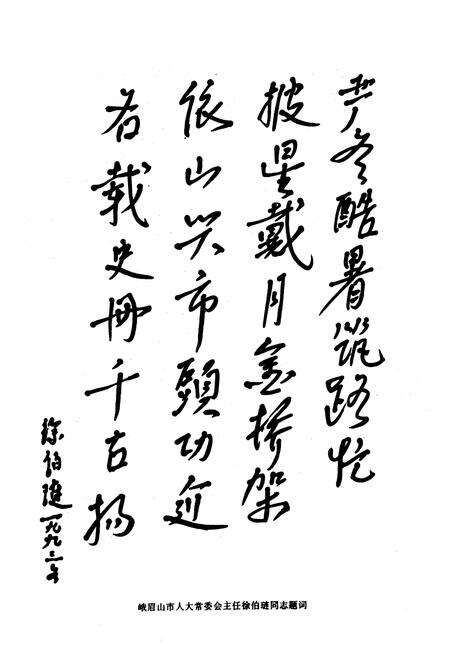 严冬酷暑筑路忙
披星戴月金桥架
依山兴市头功迎
名载史册千古扬
徐伯琏一九九三年
峨眉山市人大常委会主任徐伯琏同志题词